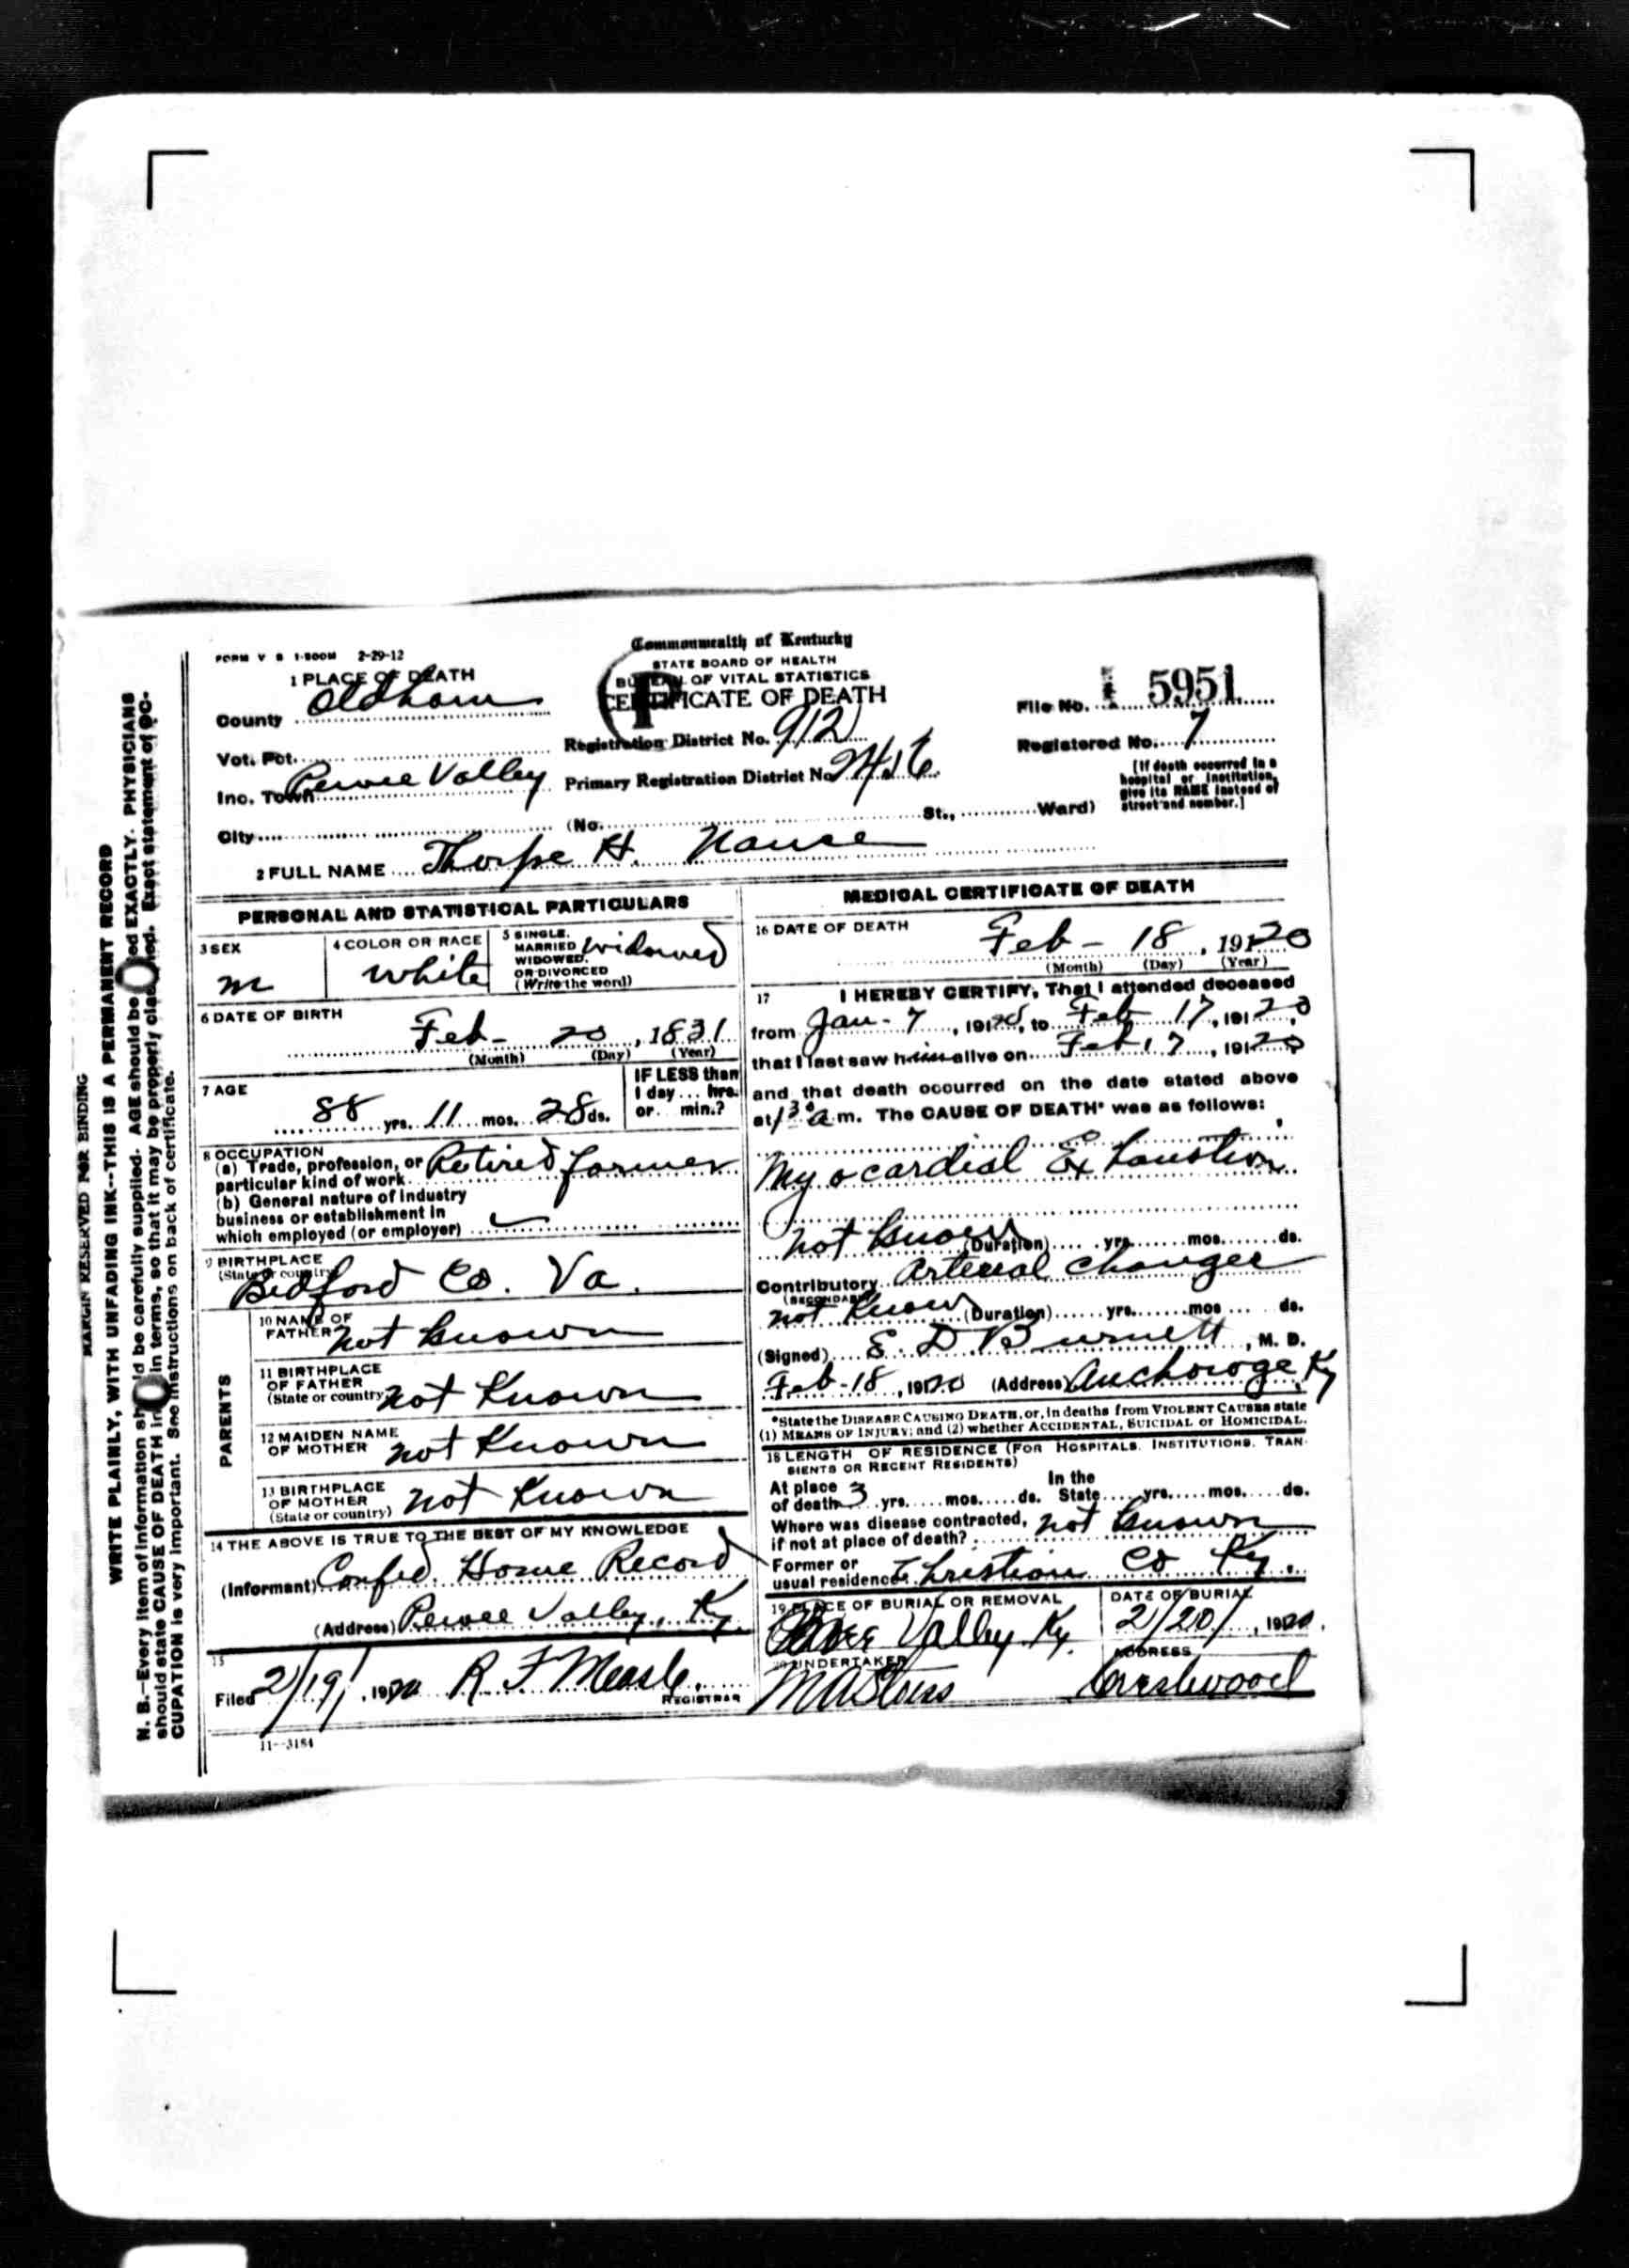 FORM V S 1-500M 2-29-12
Commonwealth of Kentucky
STATE BOARD OF HEALTH
BUREAU OF VITAL STATISTICS
CERTIFICATE OF DEATH
1 PLACE OF DEATH
County Oldham
File No. 5951
Vot. Pct.
Registration District No. 912
Registered No. 7
Inc. Town Pewee Valley
Primary Registration District No. 2416
[If death occurred in a
hospital or institution,
give its NAME instead of
street and number.]
City (No. St., Ward)
2 FULL NAME Thorpe H. Nance
PERSONAL AND STATISTICAL PARTICULARS
3 SEX
m
4 COLOR OR RACE
White
5 SINGLE,
MARRIED
WIDOWED,
OR DIVORCED
(Write the word)
Widowed
6 DATE OF BIRTH
Feb - 20, 1831
(Month) (Day) (Year)
7 AGE
88 yrs. 11 mos. 28 ds.
IF LESS than
1 day... hrs.
or... min.?
8 OCCUPATION
(a) Trade, profession, or
particular kind of work Retired farmer
(b) General nature of industry
business or establishment in
which employed (or employer)
9 BIRTHPLACE
(State or country)
Bedford Co. Va.
PARENTS
10 NAME OF
FATHER not known
11 BIRTHPLACE
OF FATHER
(State or country) not known
12 MAIDEN NAME
OF MOTHER not known
13 BIRTHPLACE
OF MOTHER
(State or country) not known
14 THE ABOVE IS TRUE TO THE BEST OF MY KNOWLEDGE
(Informant) Confed. Home Record
(Address) Pewee Valley, Ky.
15
Filed 2/19/, 1920 R F Measle
REGISTRAR
11--3184
MEDICAL CERTIFICATE OF DEATH
16 DATE OF DEATH
Feb - 18, 1920
(Month) (Day) (Year)
17 I HEREBY CERTIFY, That I attended deceased
from Jan - 7, 1920, to Feb 17, 1920,
that I last saw him alive on Feb 17, 1920
and that death occurred on the date stated above
at 1 30 a m. The CAUSE OF DEATH* was as follows:
Myocardial Exhaustion
not known (Duration) yrs. mos. ds.
Contributory Arterial changes
(SECONDARY)
not known (Duration) yrs. mos. ds.
(Signed) E. D. Burnett, M. D.
Feb - 18, 1920 (Address) Anchorage, Ky
*State the DISEASE CAUSING DEATH, or, in deaths from VIOLENT CAUSES state
(1) MEANS OF INJURY; and (2) whether ACCIDENTAL, SUICIDAL or HOMICIDAL.
18 LENGTH OF RESIDENCE (FOR HOSPITALS, INSTITUTIONS, TRAN-
SIENTS OR RECENT RESIDENTS)
At place of death 3 yrs. mos. ds. In the State yrs. mos. ds.
Where was disease contracted,
if not at place of death? not known
Former or
usual residence Christian Co Ky.
19 PLACE OF BURIAL OR REMOVAL
Pewee Valley Ky.
DATE OF BURIAL
2/20/, 1920.
20 UNDERTAKER
M A Stoess
ADDRESS
Crestwood
MARGIN RESERVED FOR BINDING
WRITE PLAINLY, WITH UNFADING INK--THIS IS A PERMANENT RECORD
N. B.--Every item of information should be carefully supplied. AGE should be stated EXACTLY. PHYSICIANS
should state CAUSE OF DEATH in terms, so that it may be properly classified. Exact statement of OC-
CUPATION is very important. See instructions on back of certificate.